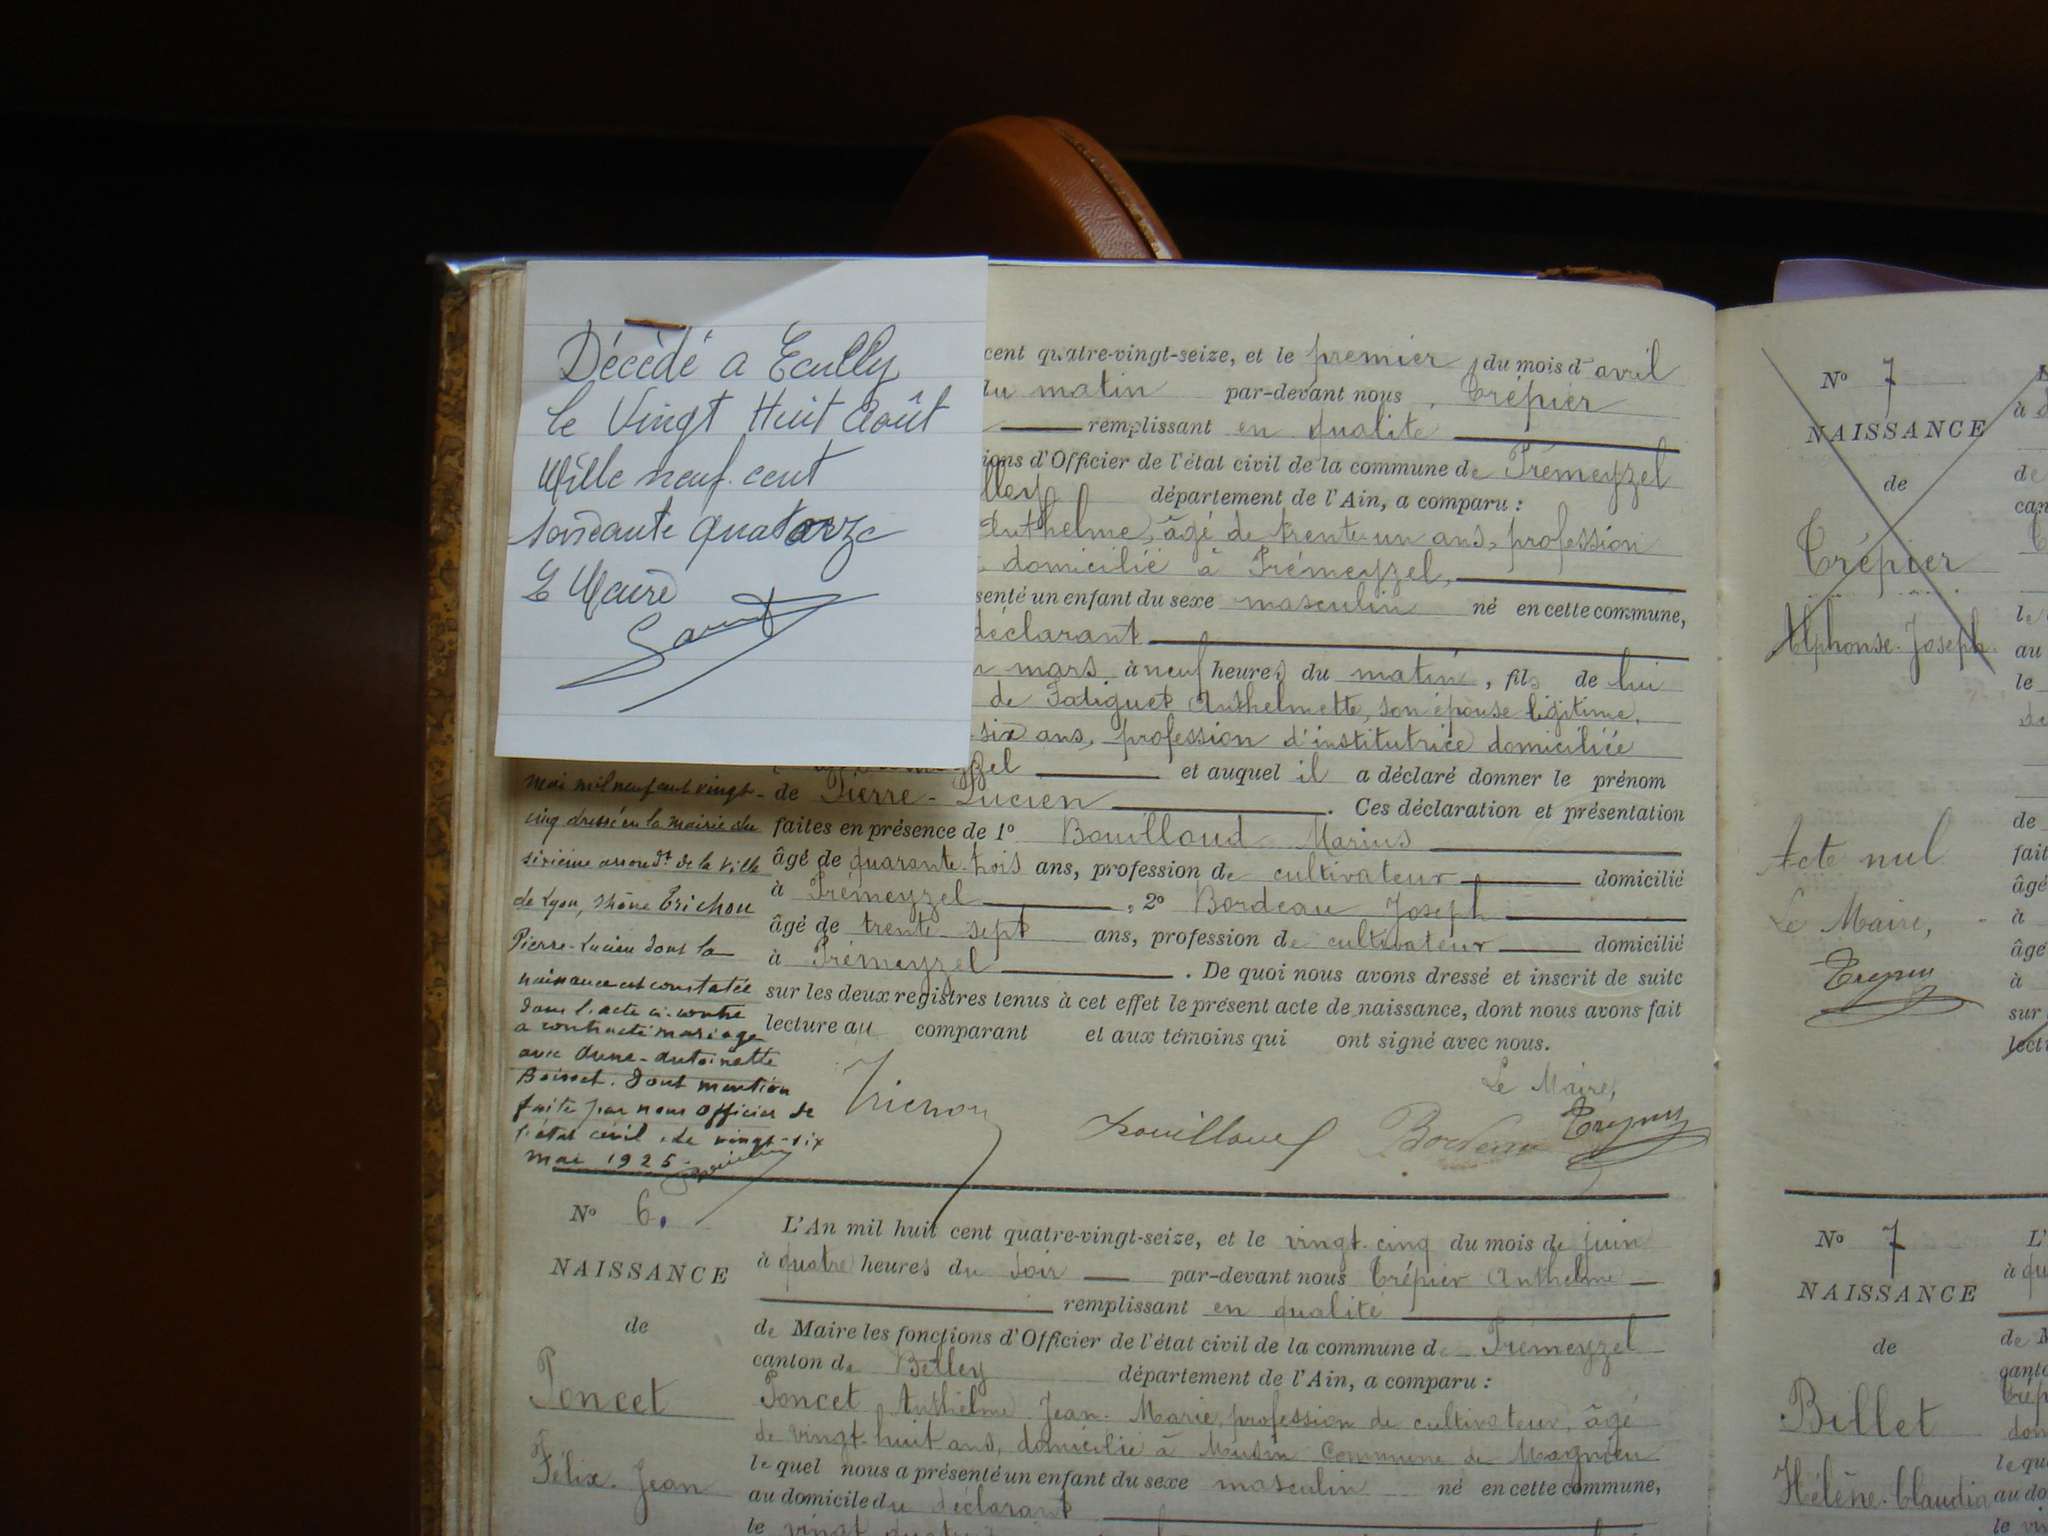 Décédé a Ecully
le Vingt Huit Août
Mille neuf cent
soixante quatorze
Le Maire
cent quatre-vingt-seize, et le premier du mois d'avril
du matin par-devant nous, Crépier
remplissant en qualité
ions d'Officier de l'état civil de la commune de Prémeyzel
lley département de l'Ain, a comparu :
Anthelme, âgé de trente-un ans, profession
domicilié à Prémeyzel,
senté un enfant du sexe masculin né en cette commune,
déclarant
mars à neuf heures du matin, fils de lui
de Fatiguet Anthelmette, son épouse légitime,
six ans, profession d'institutrice domiciliée
et auquel il a déclaré donner le prénom
de Pierre-Lucien. Ces déclaration et présentation
faites en présence de 1º Bouilloud Marius
âgé de quarante-trois ans, profession de cultivateur domicilié
à Prémeyzel, 2º Bordeau Joseph
âgé de trente-sept ans, profession de cultivateur domicilié
à Prémeyzel. De quoi nous avons dressé et inscrit de suite
sur les deux registres tenus à cet effet le présent acte de naissance, dont nous avons fait
lecture au comparant et aux témoins qui ont signé avec nous.
Le Maire,
Trichon Bouilloud Bordeau Crépier
mai mil neuf cent vingt-
cinq dressé en la mairie du
sixième arrondt de la Ville
de Lyon, Rhône Trichon
Pierre-Lucien dont la
naissance est constatée
dans l'acte ci-contre
a contracté mariage
avec Anne-Antoinette
Boisset. Dont mention
faite par nous officier de
l'état civil, le vingt-six
mai 1925
Nº 6.
NAISSANCE
de
Poncet
Félix-Jean
L'An mil huit cent quatre-vingt-seize, et le vingt-cinq du mois de juin
à quatre heures du soir par-devant nous Crépier Anthelme
remplissant en qualité
de Maire les fonctions d'Officier de l'état civil de la commune de Prémeyzel
canton de Belley département de l'Ain, a comparu :
Poncet Anthelme Jean-Marie, profession de cultivateur, âgé
de vingt-huit ans, domicilié à Musin Commune de Magnieu
lequel nous a présenté un enfant du sexe masculin né en cette commune,
au domicile du déclarant
le vingt quatre
Nº 7
NAISSANCE
de
Crépier
Alphonse-Joseph
Acte nul
Le Maire,
Crépier
Nº 7
NAISSANCE
de
Billet
Hélène-Claudia